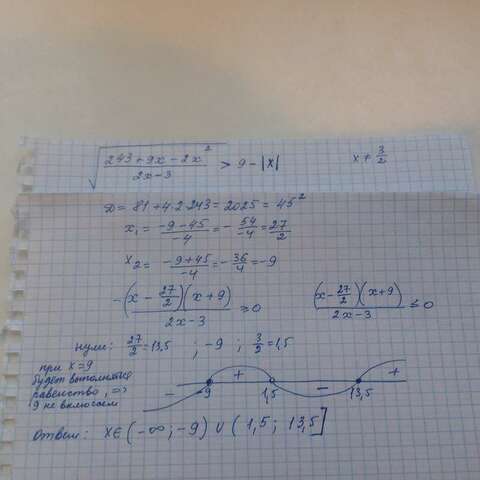 √((243 + 9x − 2x²)/(2x − 3)) > 9 − |x|    x ≠ 3/2
D = 81 + 4·2·243 = 2025 = 45²
x₁ = (−9 − 45)/(−4) = −54/(−4) = 27/2
x₂ = (−9 + 45)/(−4) = −36/4 = −9
−(x − 27/2)(x + 9)/(2x − 3) ≥ 0    (x − 27/2)(x + 9)/(2x − 3) ≤ 0
нули: 27/2 = 13,5 ; −9 ; 3/2 = 1,5
при x = 9
будет выполняться
равенство, =>
9 не включаем
− −9 + 1,5 − 13,5 +
Ответ: x ∈ (−∞; −9) ∪ (1,5; 13,5]